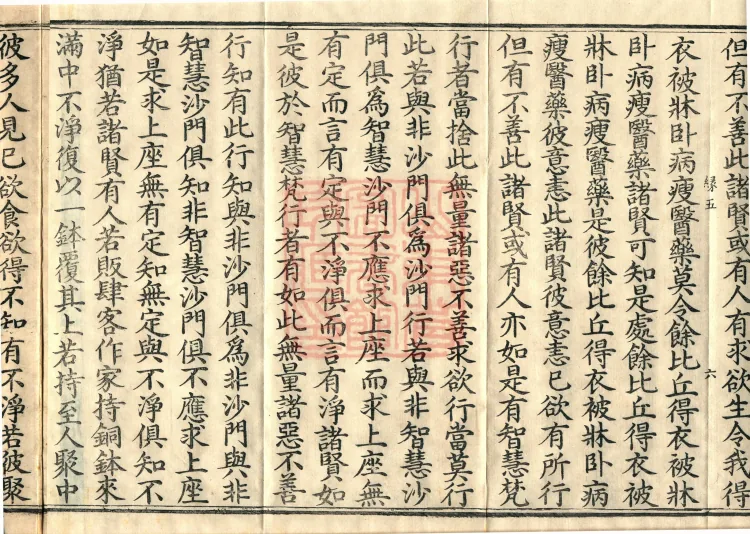 但有不善此諸賢或有人有求欲生令我得
衣被牀卧病瘦醫藥莫令餘比丘得衣被牀
卧病瘦醫藥諸賢可知是處餘比丘得衣被
牀卧病瘦醫藥是彼餘比丘得衣被牀卧病
瘦醫藥彼意恚此諸賢彼意恚已欲有所行
但有不善此諸賢或有人亦如是有智慧梵
行者當捨此無量諸惡不善求欲行當莫行
此若與非沙門俱爲沙門行若與非智慧沙
門俱爲智慧沙門不應求上座而求上座無
有定而言有定與不淨俱而言有淨諸賢如
是彼於智慧梵行者有如此無量諸惡不善
行知有此行知與非沙門俱爲非沙門與非
智慧沙門俱知非智慧沙門俱不應求上座
如是求上座無有定知無定與不淨俱知不
淨猶若諸賢有人若販肆客作家持銅鉢來
滿中不淨復以一鉢覆其上若持至人聚中
彼多人見已欲食欲得不知有不淨若彼聚
縁五
六